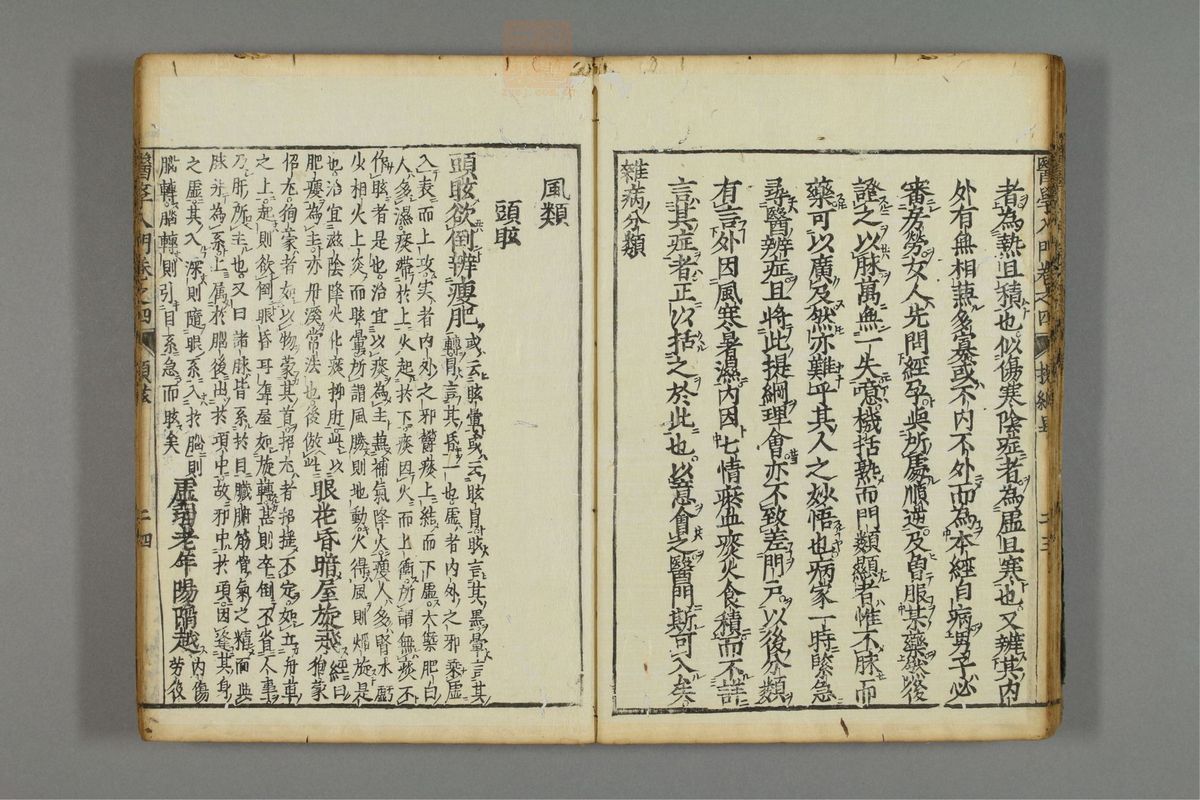 者為熱且積也似傷寒陰症者為虛且寒也又辨其內
外有無相兼多寡或不內不外而為本經自病男子必
審房勞女人先問經孕與所處順逆及曾服某藥然後
證之以脉萬無一失噫機括熟而門類顯者惟不脉而
藥可以廣及然亦難乎其人之妙悟也病家一時緊急
尋醫辨症且將此提綱理會亦不致差門戶以後分類
有言外因風寒暑濕內因七情瘀血痰火食積而不詳
言其症者正以括之於此也以意會之醫門斯可入矣
雜病分類
醫學入門卷之四 提綱 二三
風類
頭眩
頭眩欲倒辨瘦肥 或云眩暈或云眩冒眩言其黑暈言其
轉冒言其昏一也虛者內外之邪乘虛
入表而上攻實者內外之邪鬱痰上結而下虛大槩肥白
人多濕痰滯於上火起於下痰因火而上衝所謂無痰不
作眩者是也治宜以痰為主兼補氣降火瘦人多腎水虧
火相火上炎而眩暈所謂風勝則地動火得風則焰旋是
也治宜滋陰降火化痰抑肝此以
肥瘦為主亦丹溪常法也後倣此 眼花昏暗屋旋飛 經曰
徇蒙
招尤徇蒙者如以物蒙其首招尤者招搖不定如立舟車
之上起則欲倒眼昏耳聾屋如旋轉甚則卒倒不省人事
乃肝所主也又曰諸脉皆系於目臟腑筋骨氣之精而與
脉并為系上屬於腦後出於項中故邪中於項因逢其身
之虛其入深則隨眼系入於腦則
腦轉腦轉則引目系急而眩矣 虛弱老年陽陷越 內傷
勞役
醫學入門卷之四 頭眩 二四